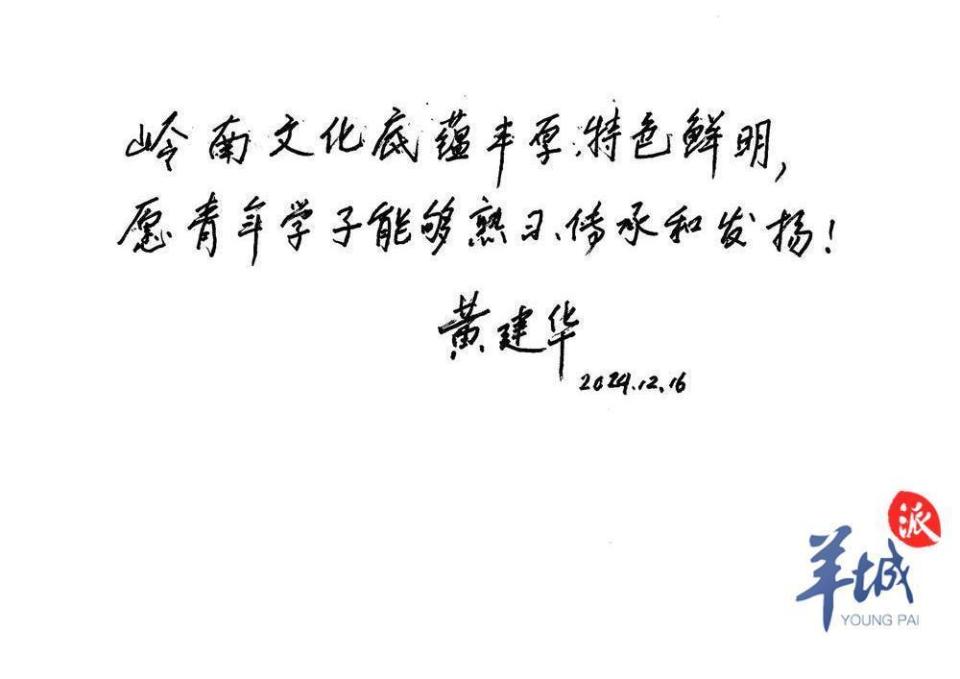 岭南文化底蕴丰厚、特色鲜明，
愿青年学子能够熟习、传承和发扬！
黄建华
2024.12.16
派
羊城
YOUNG PAI